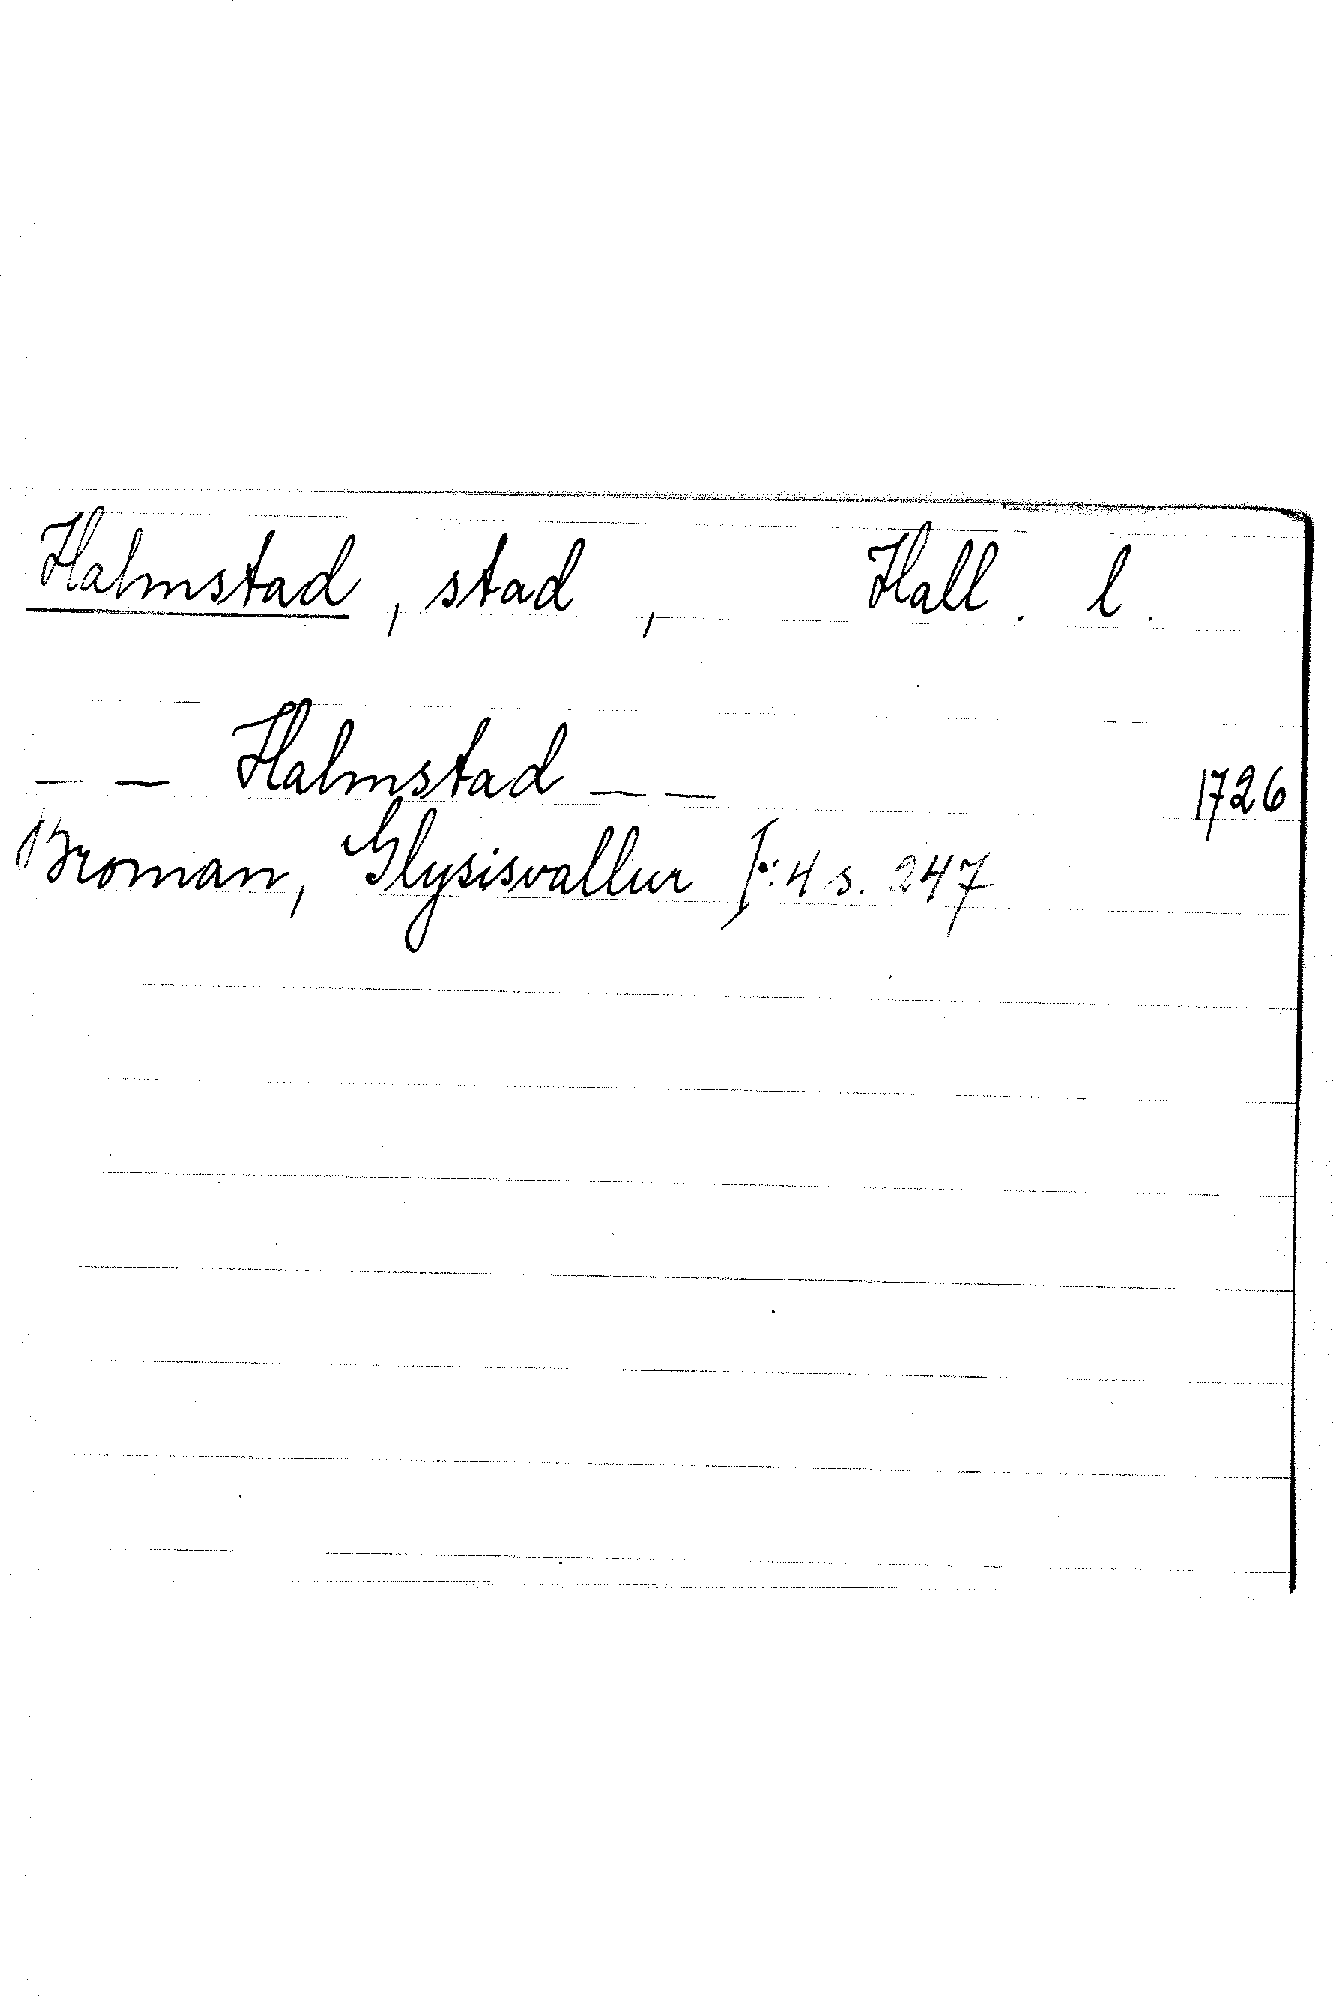 Halmstad, stad, Hall. l.
— — Halmstad — — 1726
Broman, Glysisvallur I:4 s. 247